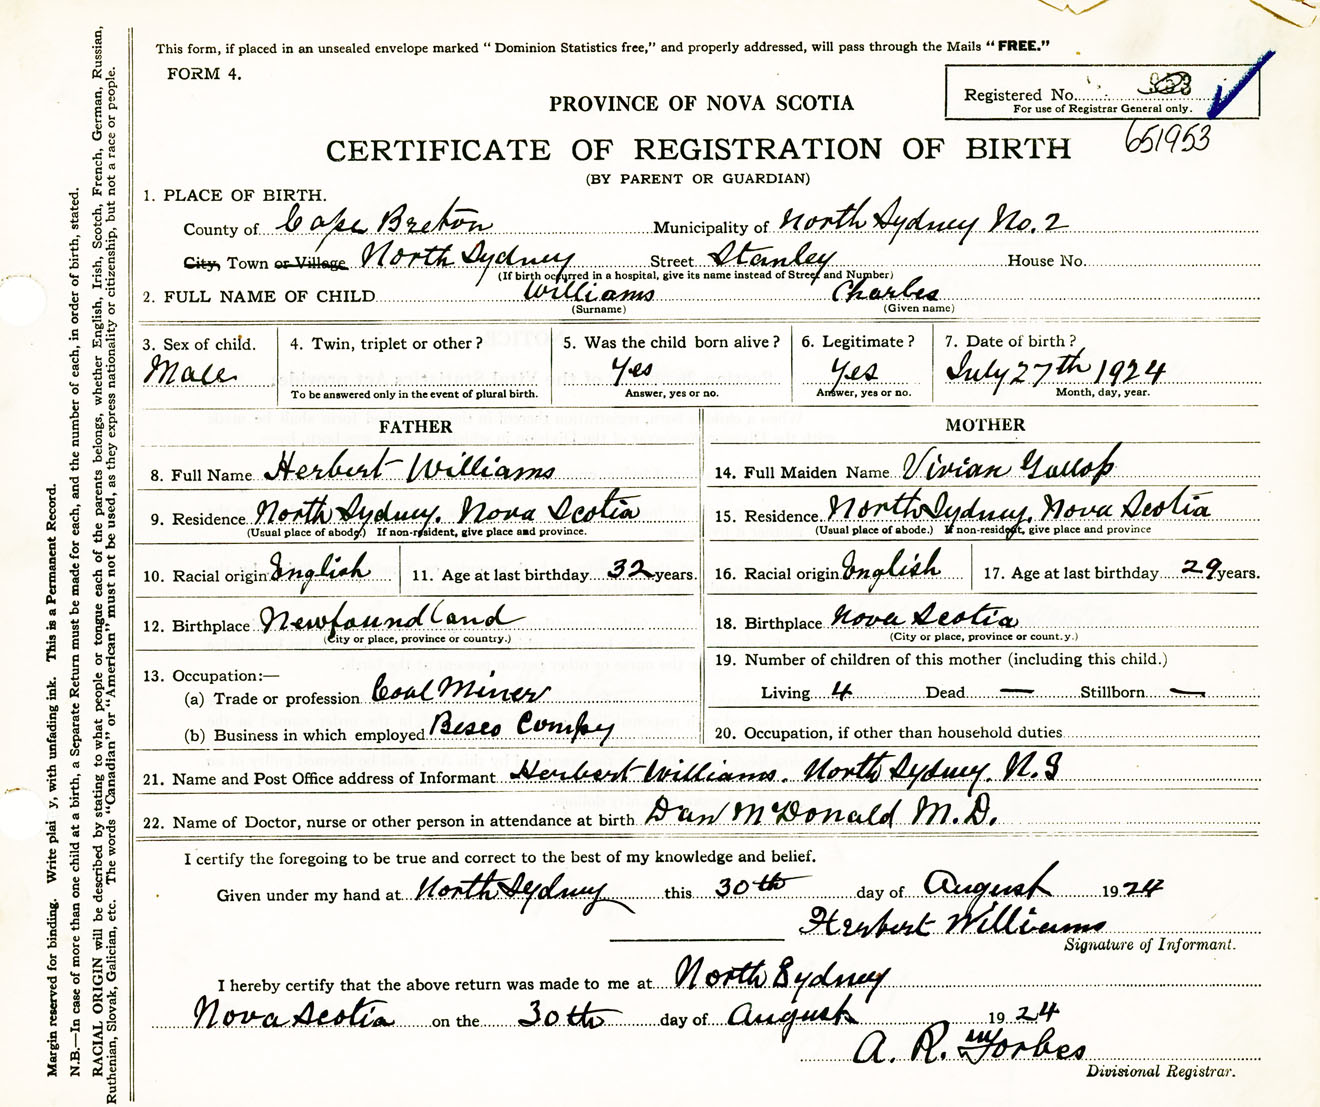 This form, if placed in an unsealed envelope marked “ Dominion Statistics free,” and properly addressed, will pass through the Mails “ FREE.”
FORM 4.
Registered No.
For use of Registrar General only.
651953
PROVINCE OF NOVA SCOTIA
CERTIFICATE OF REGISTRATION OF BIRTH
(BY PARENT OR GUARDIAN)
1. PLACE OF BIRTH.
County of Cape Breton Municipality of North Sydney No. 2
City, Town or Village North Sydney Street Stanley House No.
(If birth occurred in a hospital, give its name instead of Street and Number)
2. FULL NAME OF CHILD Williams Charles
(Surname) (Given name)
3. Sex of child. 4. Twin, triplet or other ? 5. Was the child born alive ? 6. Legitimate ? 7. Date of birth ?
Male Yes Yes July 27th 1924
To be answered only in the event of plural birth. Answer, yes or no. Answer, yes or no. Month, day, year.
FATHER MOTHER
8. Full Name Herbert Williams 14. Full Maiden Name Vivian Gallop
9. Residence North Sydney. Nova Scotia 15. Residence North Sydney. Nova Scotia
(Usual place of abode.) If non-resident, give place and province. (Usual place of abode.) If non-resident, give place and province
10. Racial origin English 11. Age at last birthday 32 years. 16. Racial origin English 17. Age at last birthday 29 years.
12. Birthplace Newfoundland 18. Birthplace Nova Scotia
(City or place, province or country.) (City or place, province or count.y.)
13. Occupation:— 19. Number of children of this mother (including this child.)
(a) Trade or profession Coal Miner Living 4 Dead — Stillborn —
(b) Business in which employed Besco Compy 20. Occupation, if other than household duties
21. Name and Post Office address of Informant Herbert Williams. North Sydney. N.S
22. Name of Doctor, nurse or other person in attendance at birth Dan McDonald M.D.
I certify the foregoing to be true and correct to the best of my knowledge and belief.
Given under my hand at North Sydney this 30th day of August 1924
Herbert Williams
Signature of Informant.
I hereby certify that the above return was made to me at North Sydney
Nova Scotia on the 30th day of August 1924
A. R. Forbes
Divisional Registrar.
Margin reserved for binding. Write plai y, with unfading ink. This is a Permanent Record.
N.B.—In case of more than one child at a birth, a Separate Return must be made for each, and the number of each, in order of birth, stated.
RACIAL ORIGIN will be described by stating to what people or tongue each of the parents belongs, whether English, Irish, Scotch, French, German, Russian,
Ruthenian, Slovak, Galician, etc. The words “Canadian” or “American” must not be used, as they express nationality or citizenship, but not a race or people.